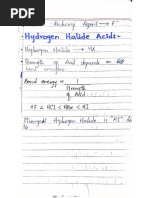 Reducing Agent → F⁻
Hydrogen Halide Acids:-
Hydrogen Halide → HX
Strength of Acid depends on
bond energies
Bond energy ∝ 1
Strength
of Acid
HF < HCl < HBr < HI
Strongest Hydrogen Halide is "HI"